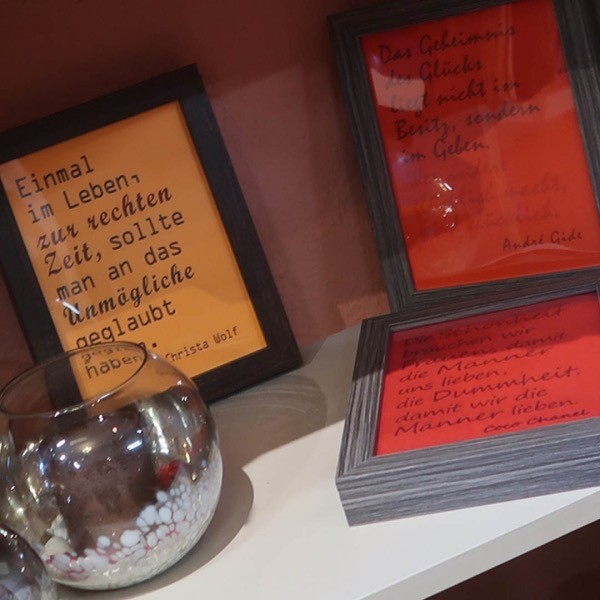 Einmal
im Leben,
zur rechten
Zeit, sollte
man an das
Unmögliche
geglaubt
haben.
Christa Wolf
Das Geheimnis
des Glücks
liegt nicht im
Besitz, sondern
im Geben.
macht,
glücklich.
André Gide
Die Schönheit
brauchen wir
Frauen, damit
die Männer
uns lieben,
die Dummheit,
damit wir die
Männer lieben.
Coco Chanel